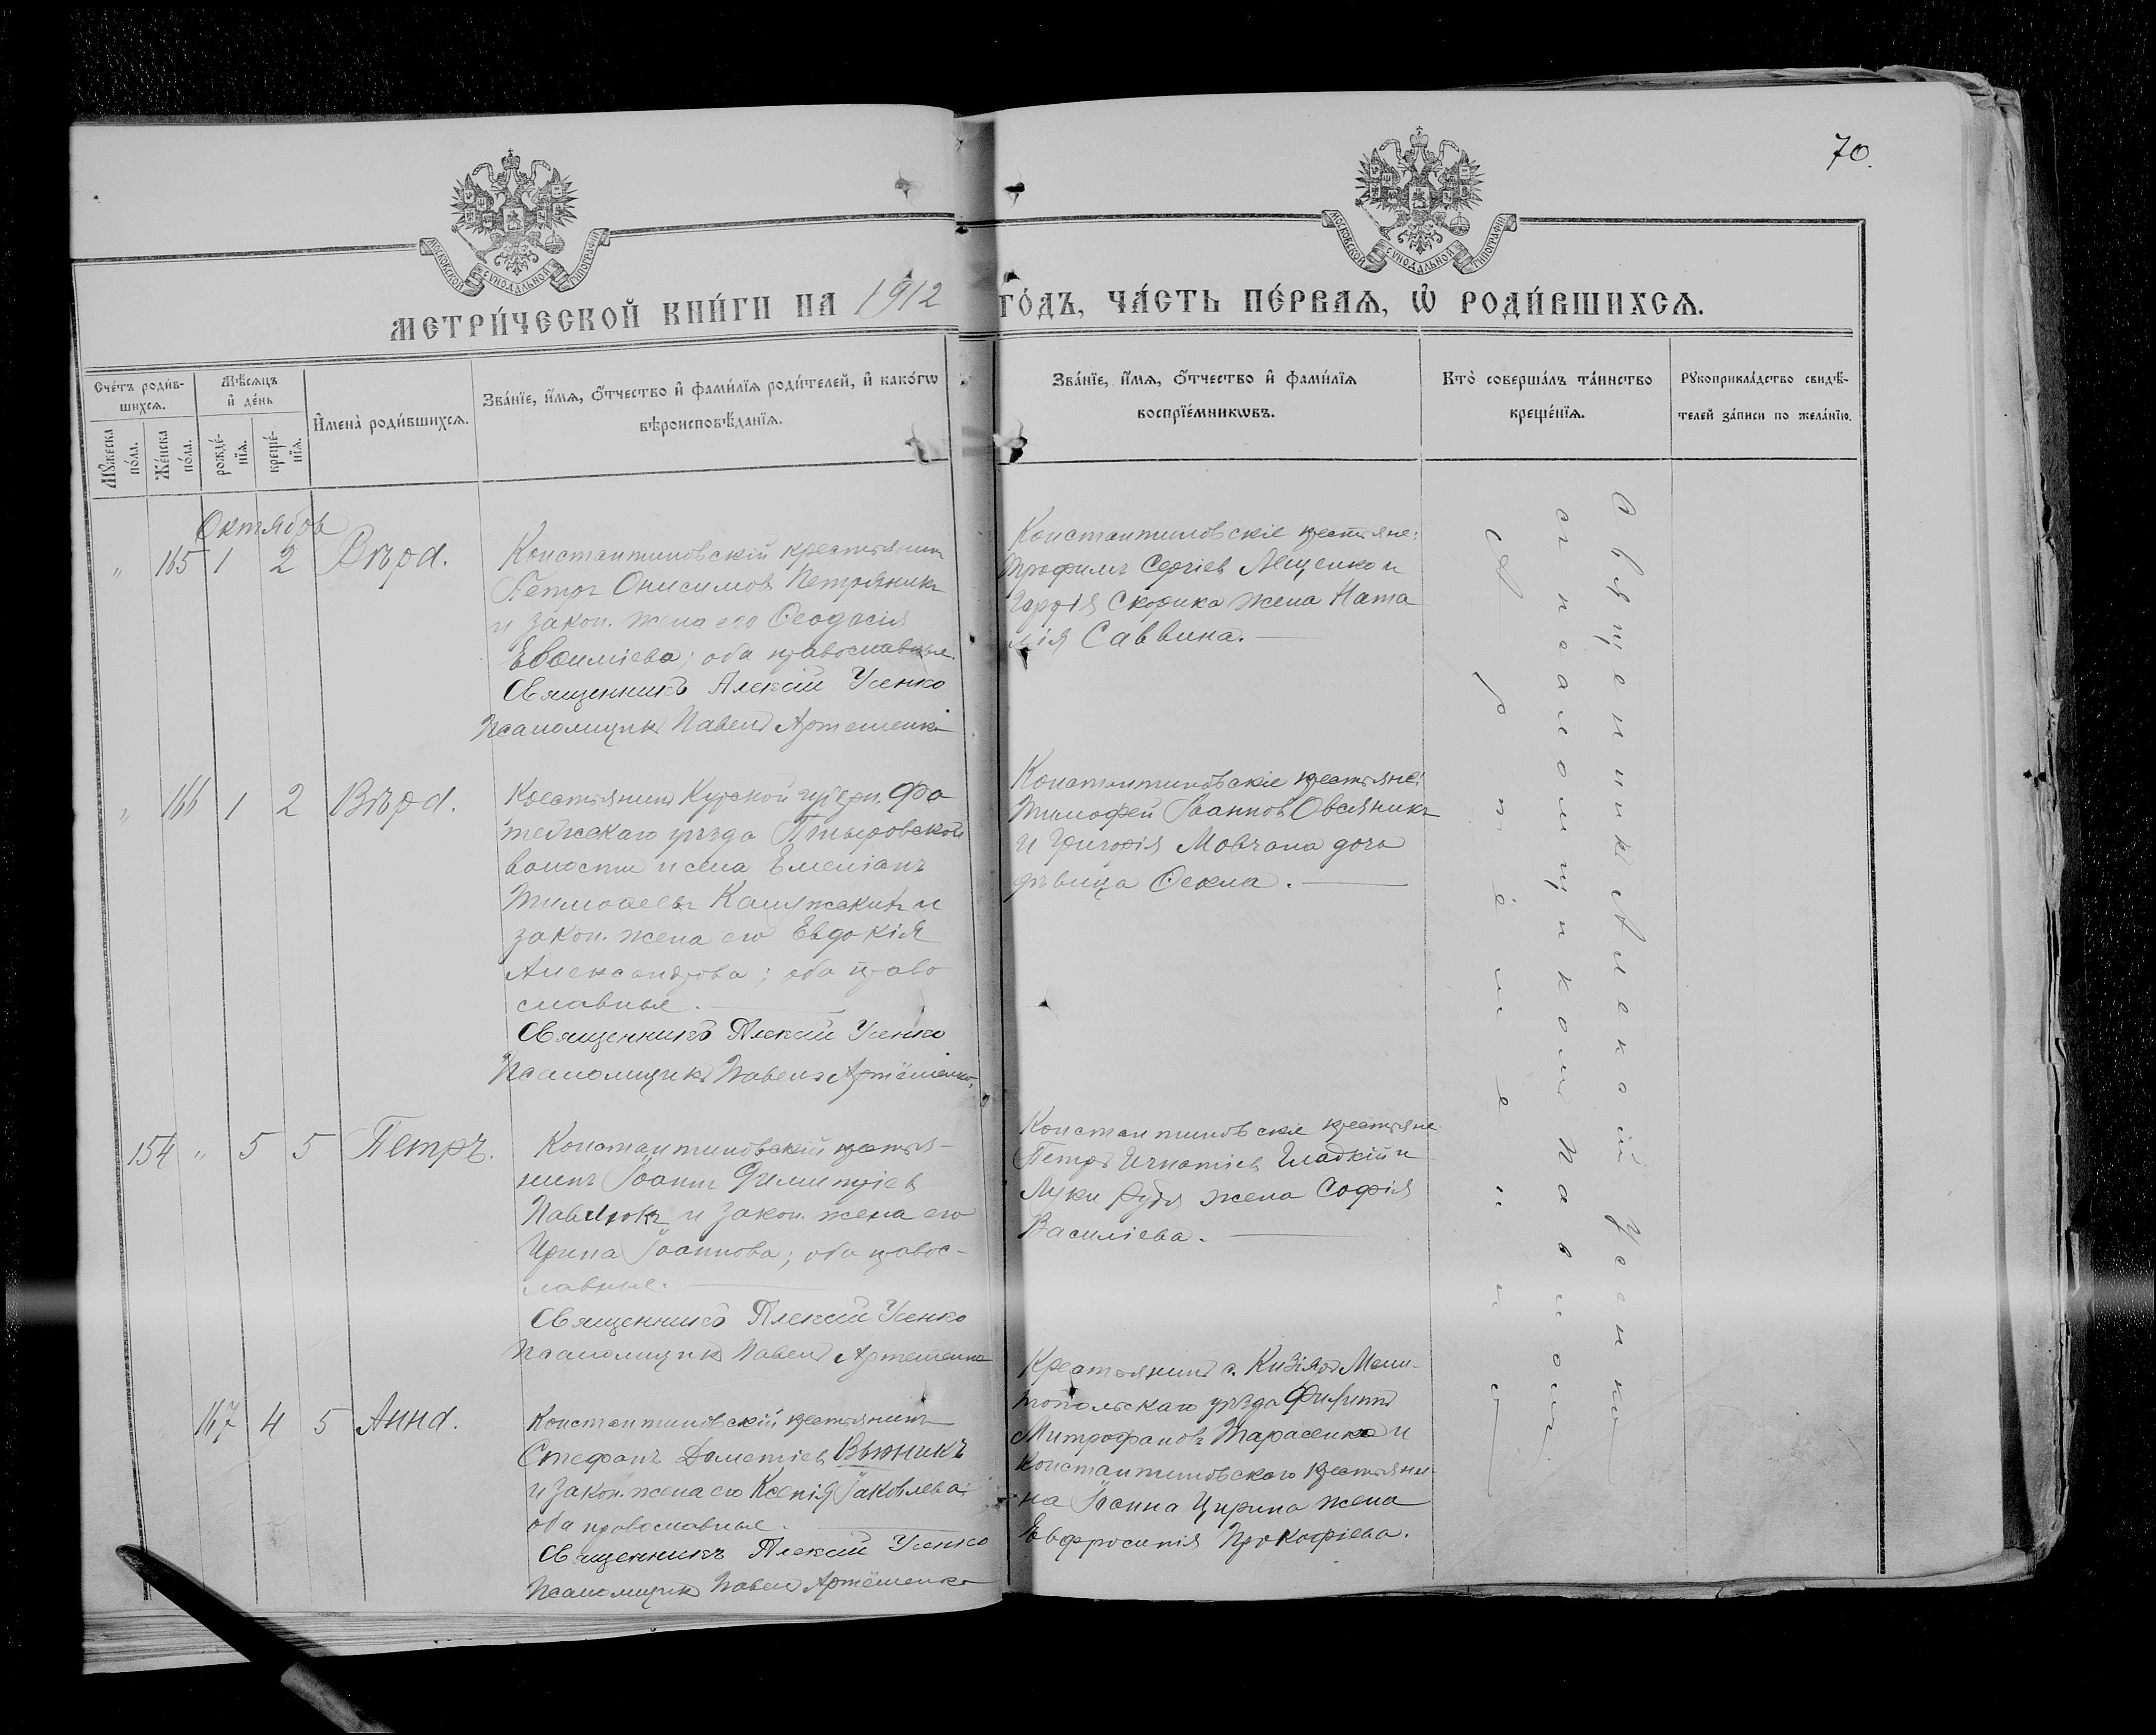 70.
МОСКОВСКОЙ СѴНОДАЛЬНОЙ ТИПОГРАФІИ
МОСКОВСКОЙ СѴНОДАЛЬНОЙ ТИПОГРАФІИ
МЕТРИ́ЧЕСКОЙ КНИ́ГИ НА 1912 ГО́ДЪ, ЧА́СТЬ ПЕ́РВАѦ, Ѡ҆ РОДИ́ВШИХСѦ.
Сче́тъ роди́в-
шихсѧ.
Мꙋ́жеска
по́ла.
Же́нска
по́ла.
Мѣ́сѧцъ
и҆ де́нь
рожде́-
нїѧ.
креще́-
нїѧ.
И҆мена̀ роди́вшихсѧ.
Зва́нїе, и҆́мѧ, ѻ҆́тчество и҆ фамѝлїѧ роди́телей, и҆ како́гѡ
вѣроисповѣ́данїѧ.
Зва́нїе, и҆́мѧ, ѻ҆́тчество и҆ фами́лїѧ
воспрїе́мникѡвъ.
Кто̀ соверша́лъ та́инство
креще́нїѧ.
Рꙋкоприкла́дство свидѣ́-
телей за́писи по жела́нїю.
Октябрь
" 165 1 2 Вѣра.
Константиновскій крестьянинъ
Петръ Онисимовъ Петряникъ
и закон. жена его Ѳеодосія
Евѳиміева; оба православные.
Священникъ Алексій Усенко
Псаломщикъ Павелъ Артёменко
Константиновскіе крестьяне:
Трофимъ Сергіевъ Лещенко и
Скорика жена Ната
лія Саввина.
" 166 1 2 Вѣра.
Крестьянинъ Курской губерн. Фа
тежскаго уѣзда
волости и села Емеліанъ
Тимоѳеевъ и
закон. жена его Евдокія
Александрова; оба право
славные.
Священникъ Алексій Усенко
Псаломщикъ Павелъ Артёменко.
Константиновскіе крестьяне:
Тимофей Іоанновъ Овсяникъ
и Григорія Мовчана дочь
дѣвица Ѳекла.
154 " 5 5 Петръ.
Константиновскій крестья-
нинъ Іоаннъ Димитріевъ
Павлюкъ и закон. жена его
Ирина Іоаннова; оба правос-
лавные.
Священникъ Алексій Усенко
Псаломщикъ Павелъ Артёменко
Константиновскіе крестьяне
Петръ Игнатіевъ Гладкій и
Луки Рудя жена Софія
Василіева.
167 4 5 Анна.
Константиновскій крестьянинъ
Стефанъ Дометіевъ Вьюникъ
и закон. жена его Ксенія Іаковлева:
оба православные.
Священникъ Алексій Усенко
Псаломщикъ Павелъ Артёменко
Крестьянинъ с. Кизіяръ Мели-
топольскаго уѣзда Филиппъ
Митрофановъ Тарасенко и
Константиновскаго крестьяни-
на Іоанна Цирина жена
Евфросинія Прокофіева.
Священникъ Алексій Усенко
съ псаломщикомъ Павломъ
Артёменко